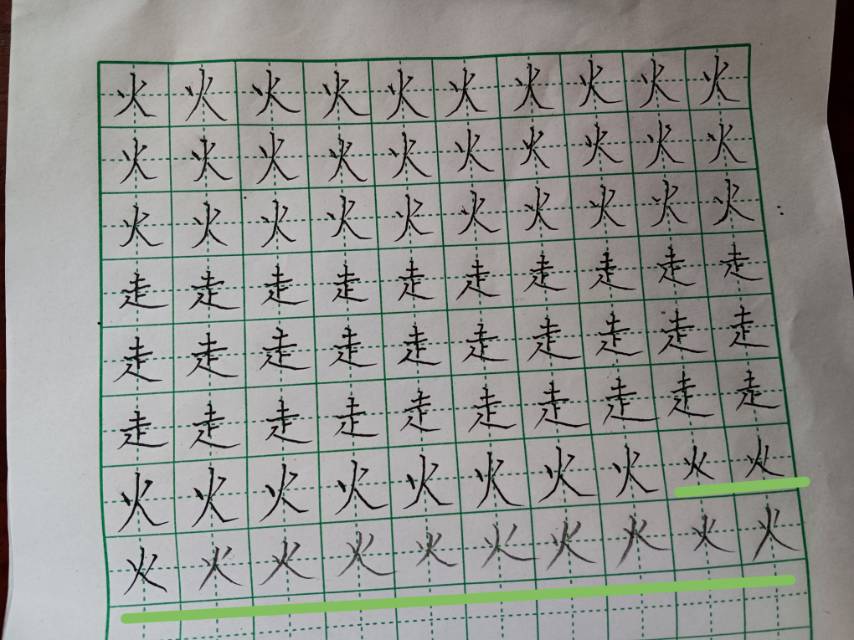 火火火火火火火火火火
火火火火火火火火火火
火火火火火火火火火火
走走走走走走走走走走
走走走走走走走走走走
走走走走走走走走走走
火火火火火火火火火火
火火火火火火火火火火